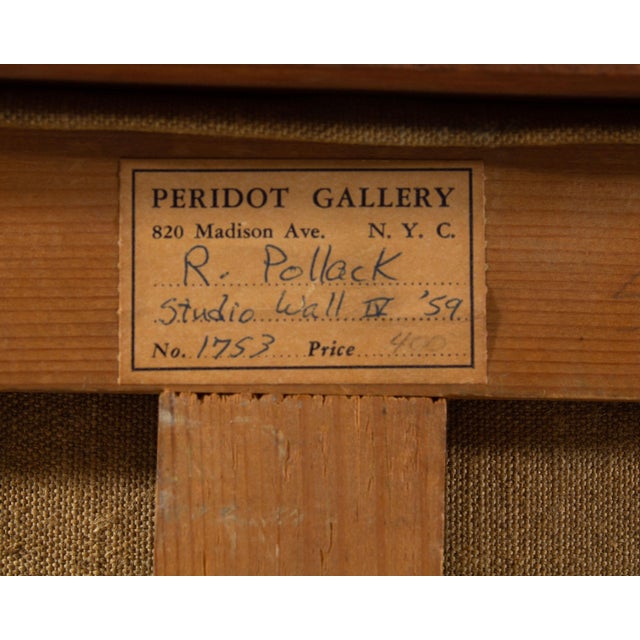 PERIDOT GALLERY
820 Madison Ave. N. Y. C.
R. Pollack
Studio Wall IV '59
No. 1753 Price 400